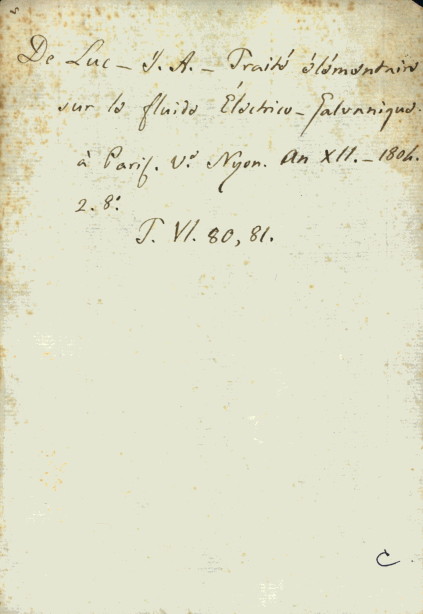 De Luc - J. A. - Traité élémentaire
sur le fluide Électrico - Galvannique.
à Paris. Ve Nyon. An XII. - 1804.
2. 8º.
T. VI. 80, 81.
C.